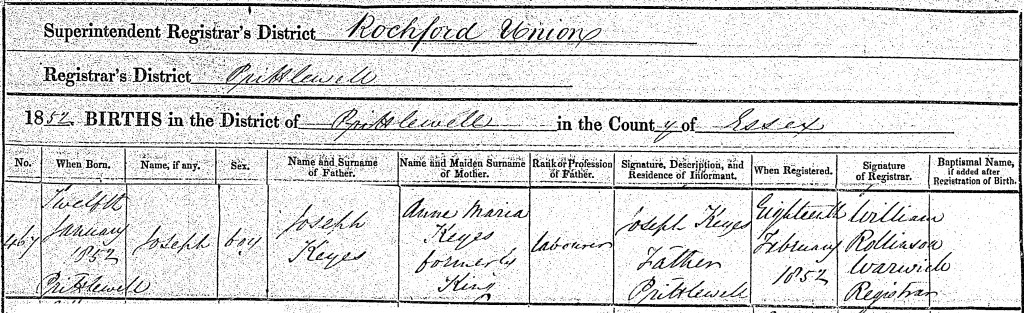 Superintendent Registrar's District Rochford Union
Registrar's District Prittlewell
1852 BIRTHS in the District of Prittlewell in the County of Essex
No. When Born. Name, if any. Sex. Name and Surname of Father. Name and Maiden Surname of Mother. Rank or Profession of Father. Signature, Description, and Residence of Informant. When Registered. Signature of Registrar. Baptismal Name, if added after Registration of Birth.
467
Twelfth
January
1852
Prittlewell
Joseph
boy
Joseph
Keyes
Anne Maria
Keyes
formerly
King
labourer
Joseph Keyes
Father
Prittlewell
Eighteenth
February
1852
William
Rollinson
Warwick
Registrar